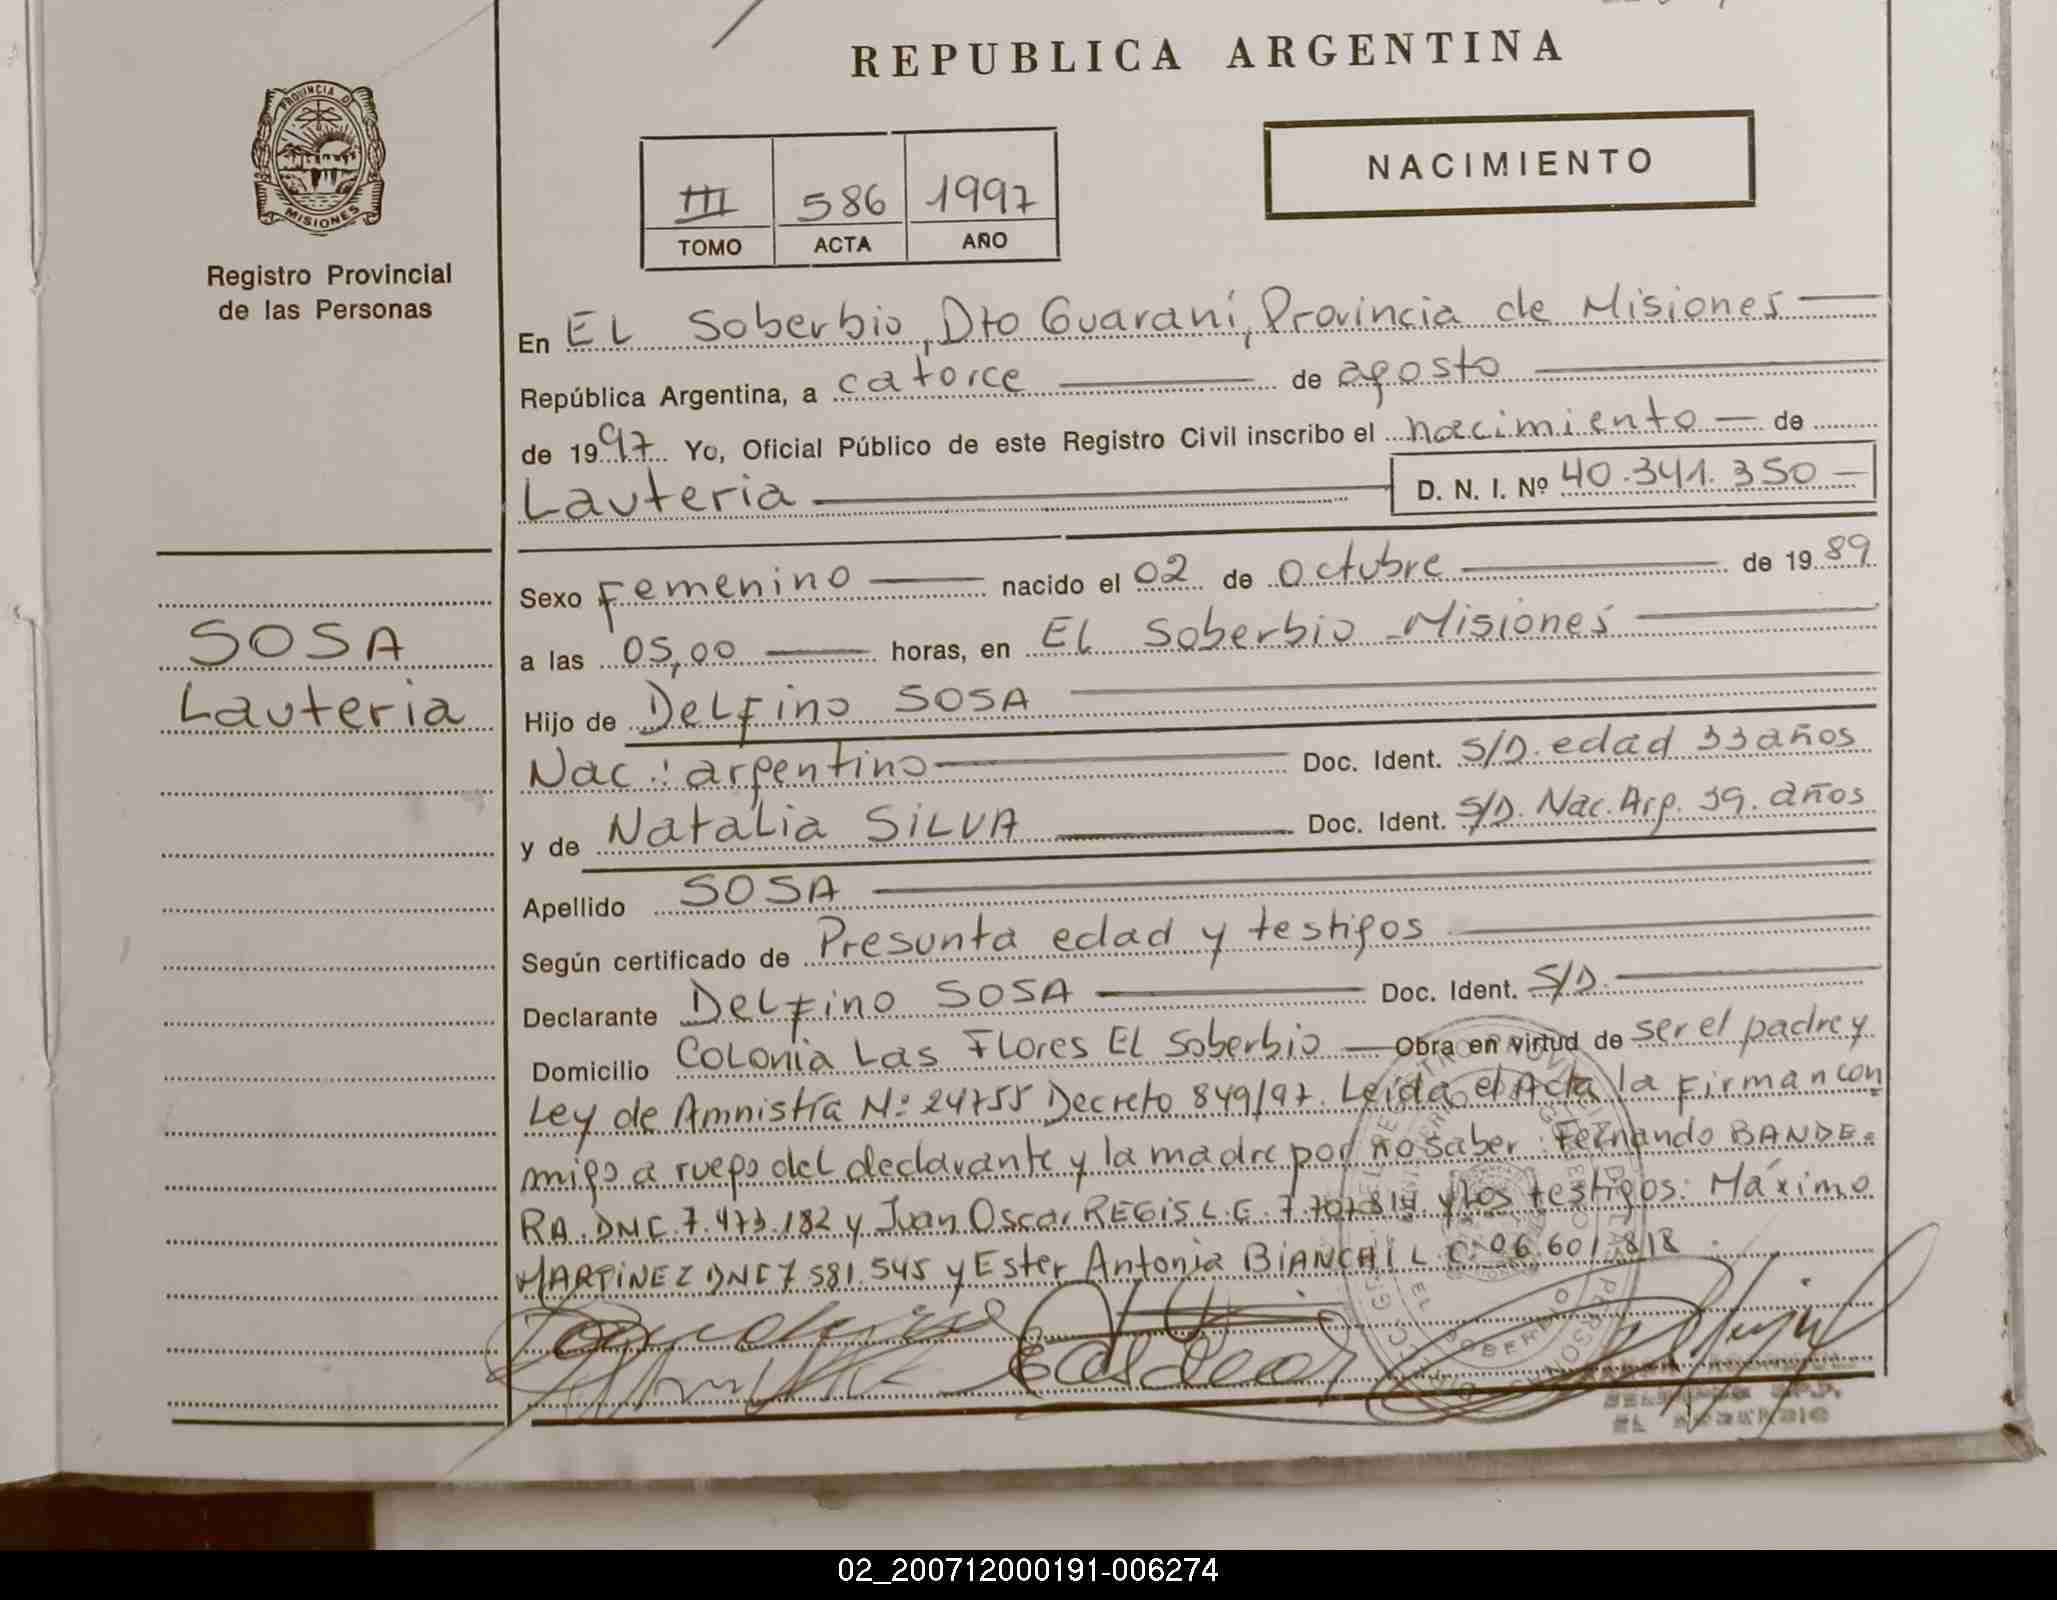 REPUBLICA ARGENTINA
PROVINCIA DE
MISIONES
Registro Provincial
de las Personas
NACIMIENTO
III 586 1997
TOMO ACTA AÑO
En EL Soberbio, Dto Guaraní, Provincia de Misiones
República Argentina, a catorce de agosto
de 1997 Yo, Oficial Público de este Registro Civil inscribo el nacimiento de
Lauteria D. N. I. Nº 40.341.350
Sexo Femenino nacido el 02 de Octubre de 1989
a las 05,00 horas, en EL Soberbio Misiones
SOSA
Lauteria
Hijo de DeLFino SOSA
Nac.: argentino Doc. Ident. S/D. edad 33 años
y de NataLia SiLVA Doc. Ident. S/D. Nac. Arg. 39. años
Apellido SOSA
Según certificado de Presunta edad y testigos
Declarante DeLFino SOSA Doc. Ident. S/D.
Domicilio CoLonia Las FLores EL Soberbio Obra en virtud de ser el padre y
Ley de Amnistía Nº 24755 Decreto 849/97. Leída el Acta la Firman con
migo a ruego del declarante y la madre por no saber: Fernando BANDE=
RA. DNE. 7.473.182 y Juan Oscar REGIS L.E. 7.707.814 y los testigos: Máximo
MARTINEZ DNE 7 581.545 y Ester Antonia BIANCHI L.C. 06.601.818
EL SOBERBIO
02_200712000191-006274